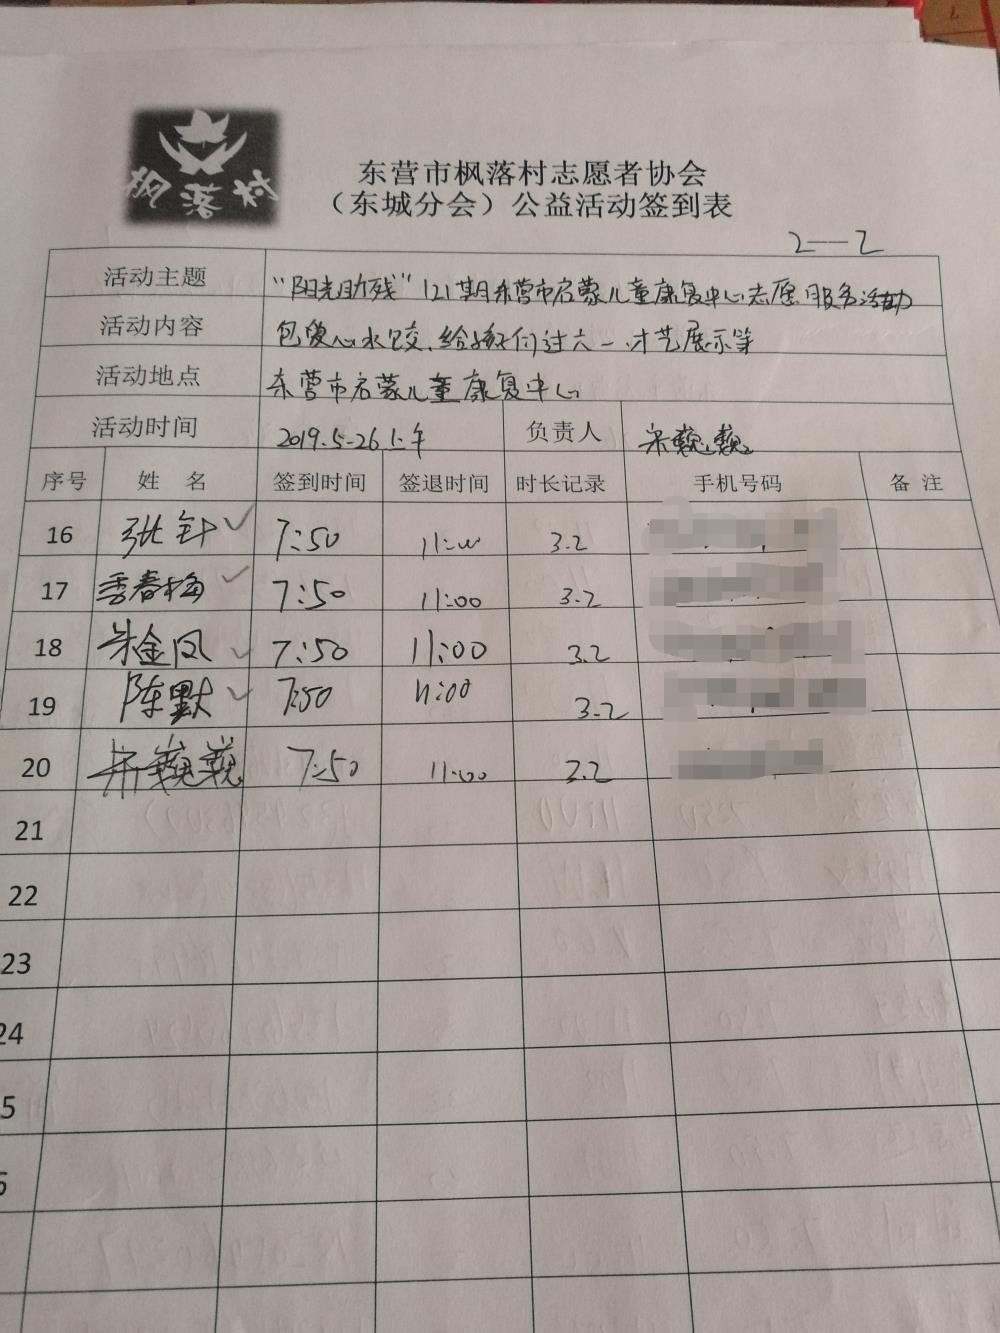 枫落村
东营市枫落村志愿者协会
（东城分会）公益活动签到表
2—2
活动主题 "阳光助残"121期东营市启蒙儿童康复中心志愿服务活动
活动内容 包爱心水饺、给孩子们过六一、才艺展示等
活动地点 东营市启蒙儿童康复中心
活动时间 2019.5-26上午 负责人 宋巍巍
序号 姓名 签到时间 签退时间 时长记录 手机号码 备注
16 张针 7:50 11:00 3.2
17 季春梅 7:50 11:00 3.2
18 朱金凤 7:50 11:00 3.2
19 陈默 7:50 11:00 3.2
20 宋巍巍 7:50 11:00 3.2
21
22
23
24
5
6